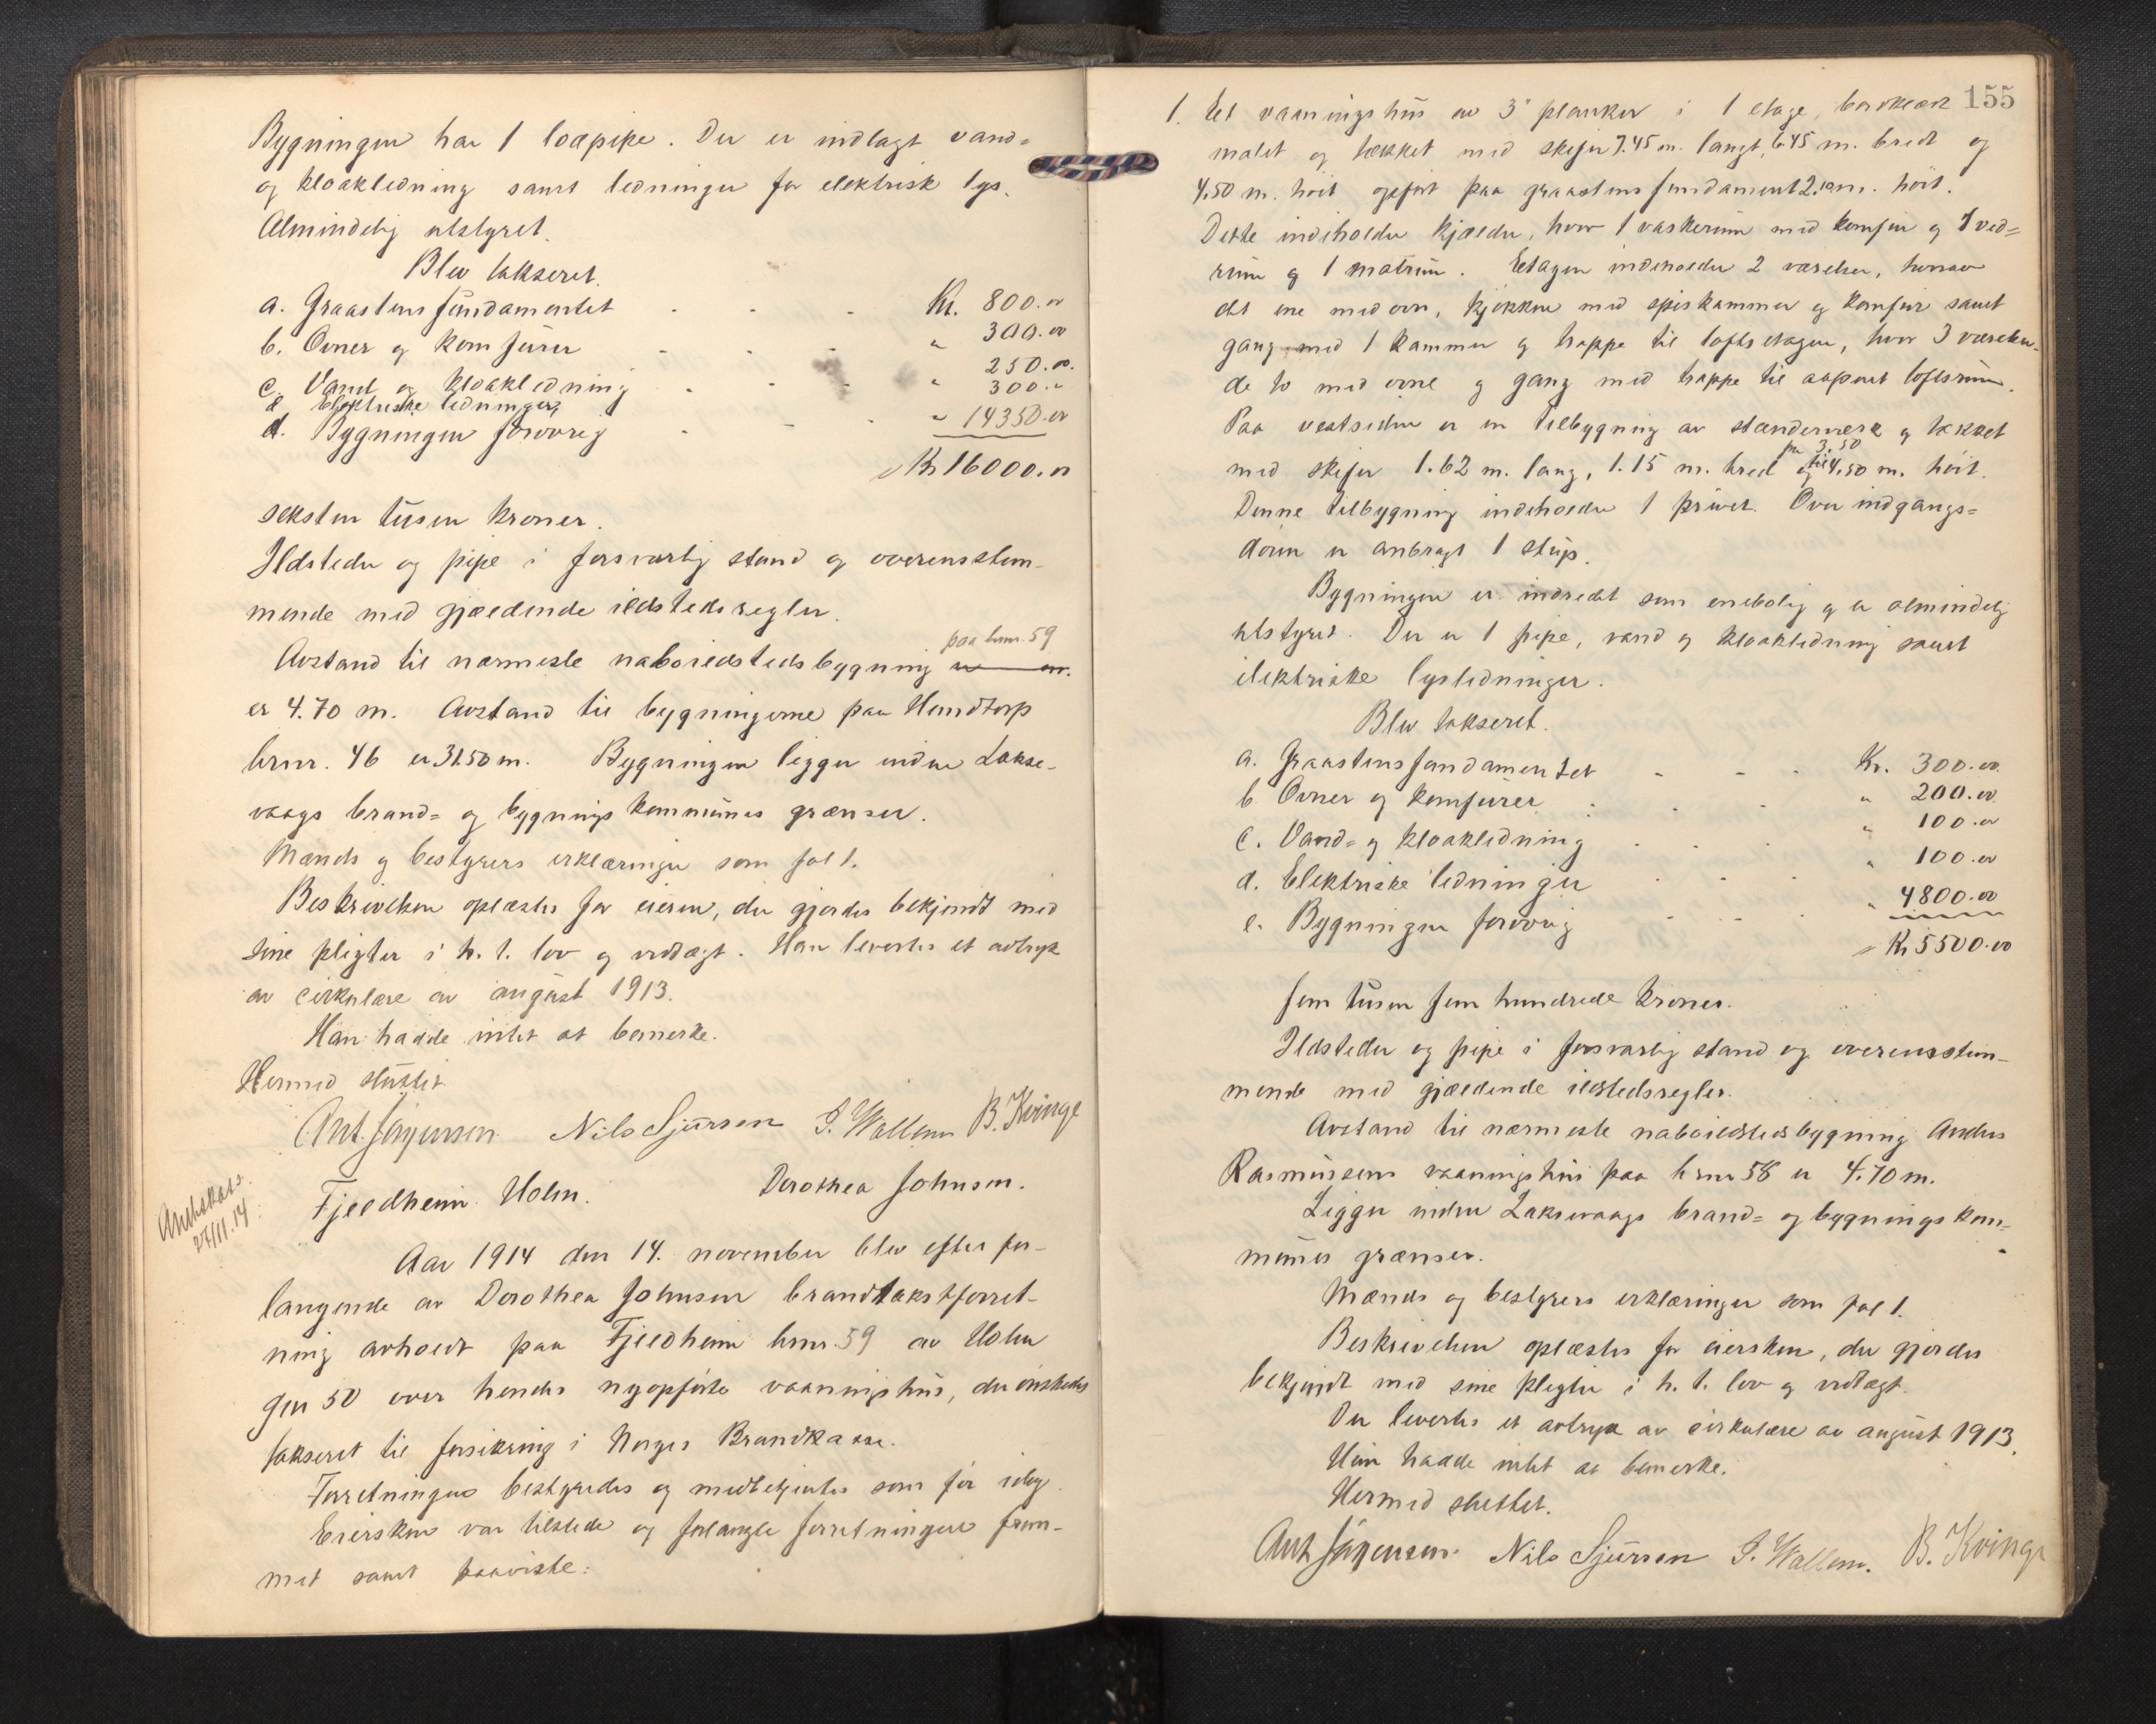 Bygningen har 1 loapipe. Der er indlagt vand=
og kloakledning samt ledninger for elektrisk lys.
Almindelig utstyret.
Blev takseret.
a. Graastensfundamentet Kr. 800.00
b. Ovner og komfurer " 300.00
c. Vand og kloakledning " 250.00
d Elektriske ledninger " 300."
d. Bygningen forøvrig " 14350.00
Kr 16000.00
seksten tusen kroner.
Ildsteder og pipe i forsvarlig stand og overensstem-
mende med gjældende ildstedsregler.
paa brnr. 59
Avstand til nærmeste naboildstedsbygning
er 4.70 m. Avstand til bygningerne paa Hundtorp
brnr. 46 er 31.50 m. Bygningen ligger inden Lakse-
vaags brand= og bygningskommunes grænser.
Mænds og bestyrers erklæringer som fol 1.
Beskrivelsen oplæstes for eieren, der gjordes bekjendt med
sine pligter i h. t. lov og vedtægt. Han levertes et avtryk
av cirkulære av august 1913.
Han hadde intet at bemerke.
Hermed sluttet
Ant. Jørgensen Nils Sjursen S. Wallem B. Kvinge
Fjeldheim Holm. Dorothea Johnsen.
27/11.14
Aar 1914 den 14. november blev efter for-
langende av Dorothea Johnsen brandtakstforret-
ning avholdt paa Fjeldheim brnr. 59 av Holm
gnr 50 over hendes nyopførte vaaningshus, der ønskedes
takseret til forsikring i Norges Brandkasse.
Forretningen bestyredes og medbetjentes som før idag.
Eiersken var tilstede og forlangte forretningen frem-
met samt paaviste:
155
1. Et vaaningshus av 3" planker i 1 etage, bordklædt
malet og tækket med skifer 7.45 m. langt, 6.45 m. bredt og
4.50 m. høit opført paa graastensfundament 2.10 m. høit.
Dette indeholder kjælder, hvor 1 vaskerum med komfur og 1 ved=
rum og 1 matrum. Etagen indeholder 2 værelser, hvorav
det ene med ovn, kjøkken med spiskammer og komfur samt
gang med 1 kammer og trappe til loftsetagen, hvor 3 værelser
de to med ovne og gang med trappe til aapent loftsrum.
Paa vestsiden er en tilbygning av stænderverk og tækket
fra 3.50
med skifer 1.62 m. lang, 1.15 m. bred og til 4.50 m. høit.
Denne tilbygning indeholder 1 privet. Over indgangs=
døren er anbragt 1 stup.
Bygningen er indredet som enebolig og er almindelig
utstyret. Der er 1 pipe, vand og kloakledning samt
elektriske lysledninger.
Blev takseret.
a. Graastensfundamentet Kr. 300.00
b Ovner og komfurer " 200.00
c. Vand= og kloakledning " 100.00
d. Elektriske ledninger " 100.00
e. Bygningen forøvrig " 4800.00
Kr 5500.00
fem tusen fem hundrede kroner.
Ildsteder og pipe i forsvarlig stand og overensstem-
mende med gjældende ildstedsregler.
Avstand til nærmeste naboildstedsbygning Anders
Rasmussens vaaningshus paa brnr 58 er 4.70 m.
Ligger inden Laksevaags brand= og bygningskom-
munes grænser.
Mænds og bestyrers erklæringer som fol 1.
Beskrivelsen oplæstes for eiersken, der gjordes
bekjendt med sine pligter i h. t. lov og vedtægt.
Der levertes et avtryk av cirkulære av august 1913.
Hun hadde intet at bemerke.
Hermed sluttet.
Ant Jørgensen Nils Sjursen S. Wallem. B. Kvinge